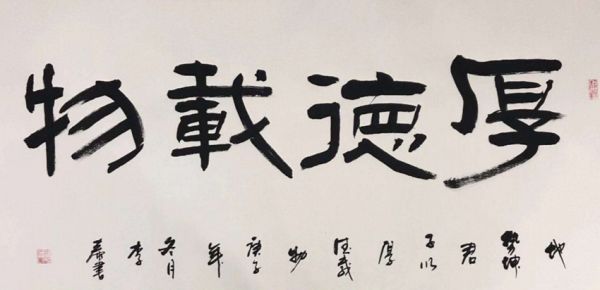 厚德載物
地勢坤君子以厚德載物庚子年冬月李書